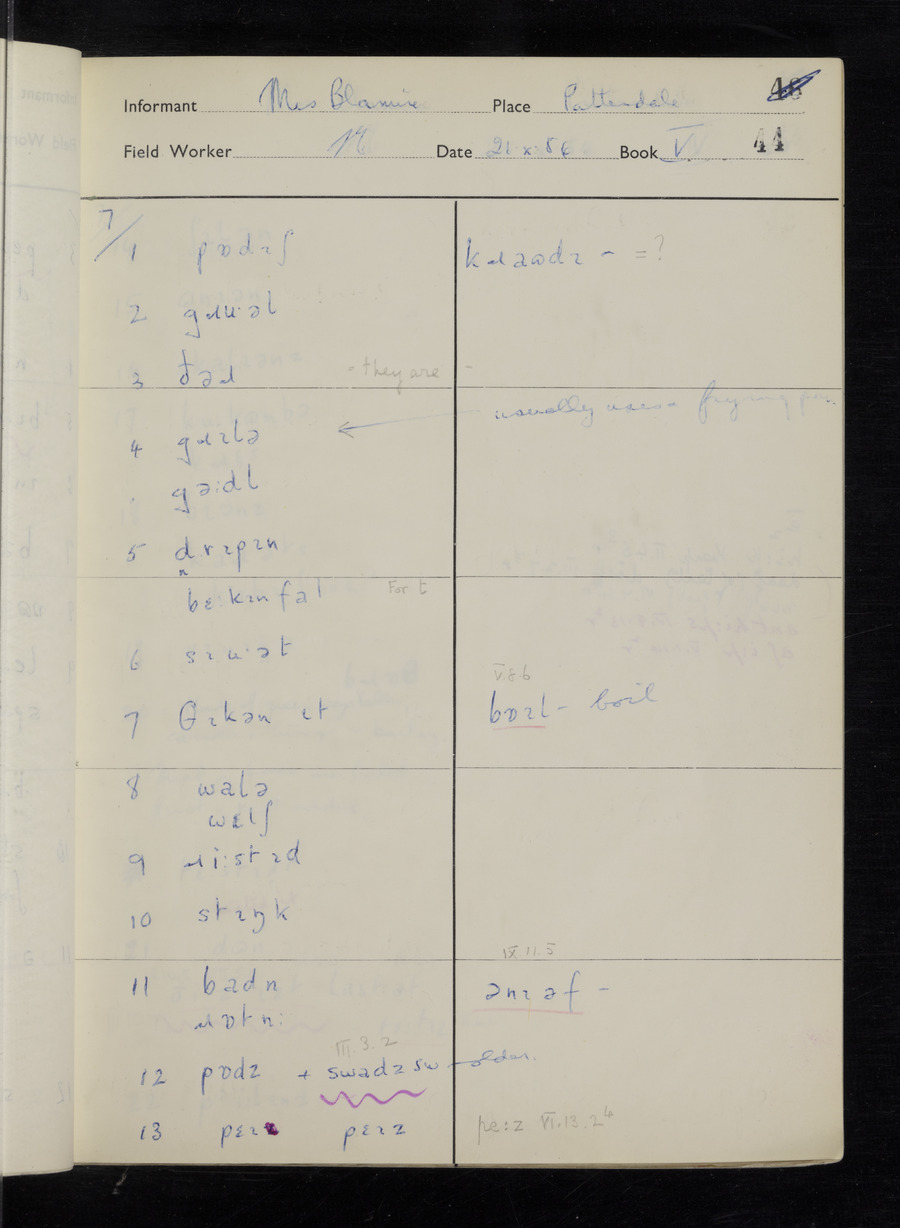 Informant Mrs Blamire Place Patterdale 48
Field Worker Date 21 x 54 Book V 44
7/
1 pɒdɪʃ kɹaʊdɪ – = ?
2 gɹuːəl
3 ðəɹ = they are –
4 gɹɪlə usually uses a frying pan.
gəːdl
5 dɹɪpɪn
bɛːkɪnfat For t
6 sɪuːət
V.8.6
7 θɪkən ɪt bɒɪl – boil
8 walə
wɛlʃ
9 ɹiːstɪd
10 stɪŋk
IX.11.5
11 badn ənɪəf –
ɹɒtn̩
III.3.2
12 pɒdz + swadz sw – older.
13 pɛɪz pɛɪz peːz VI.13.2⁴